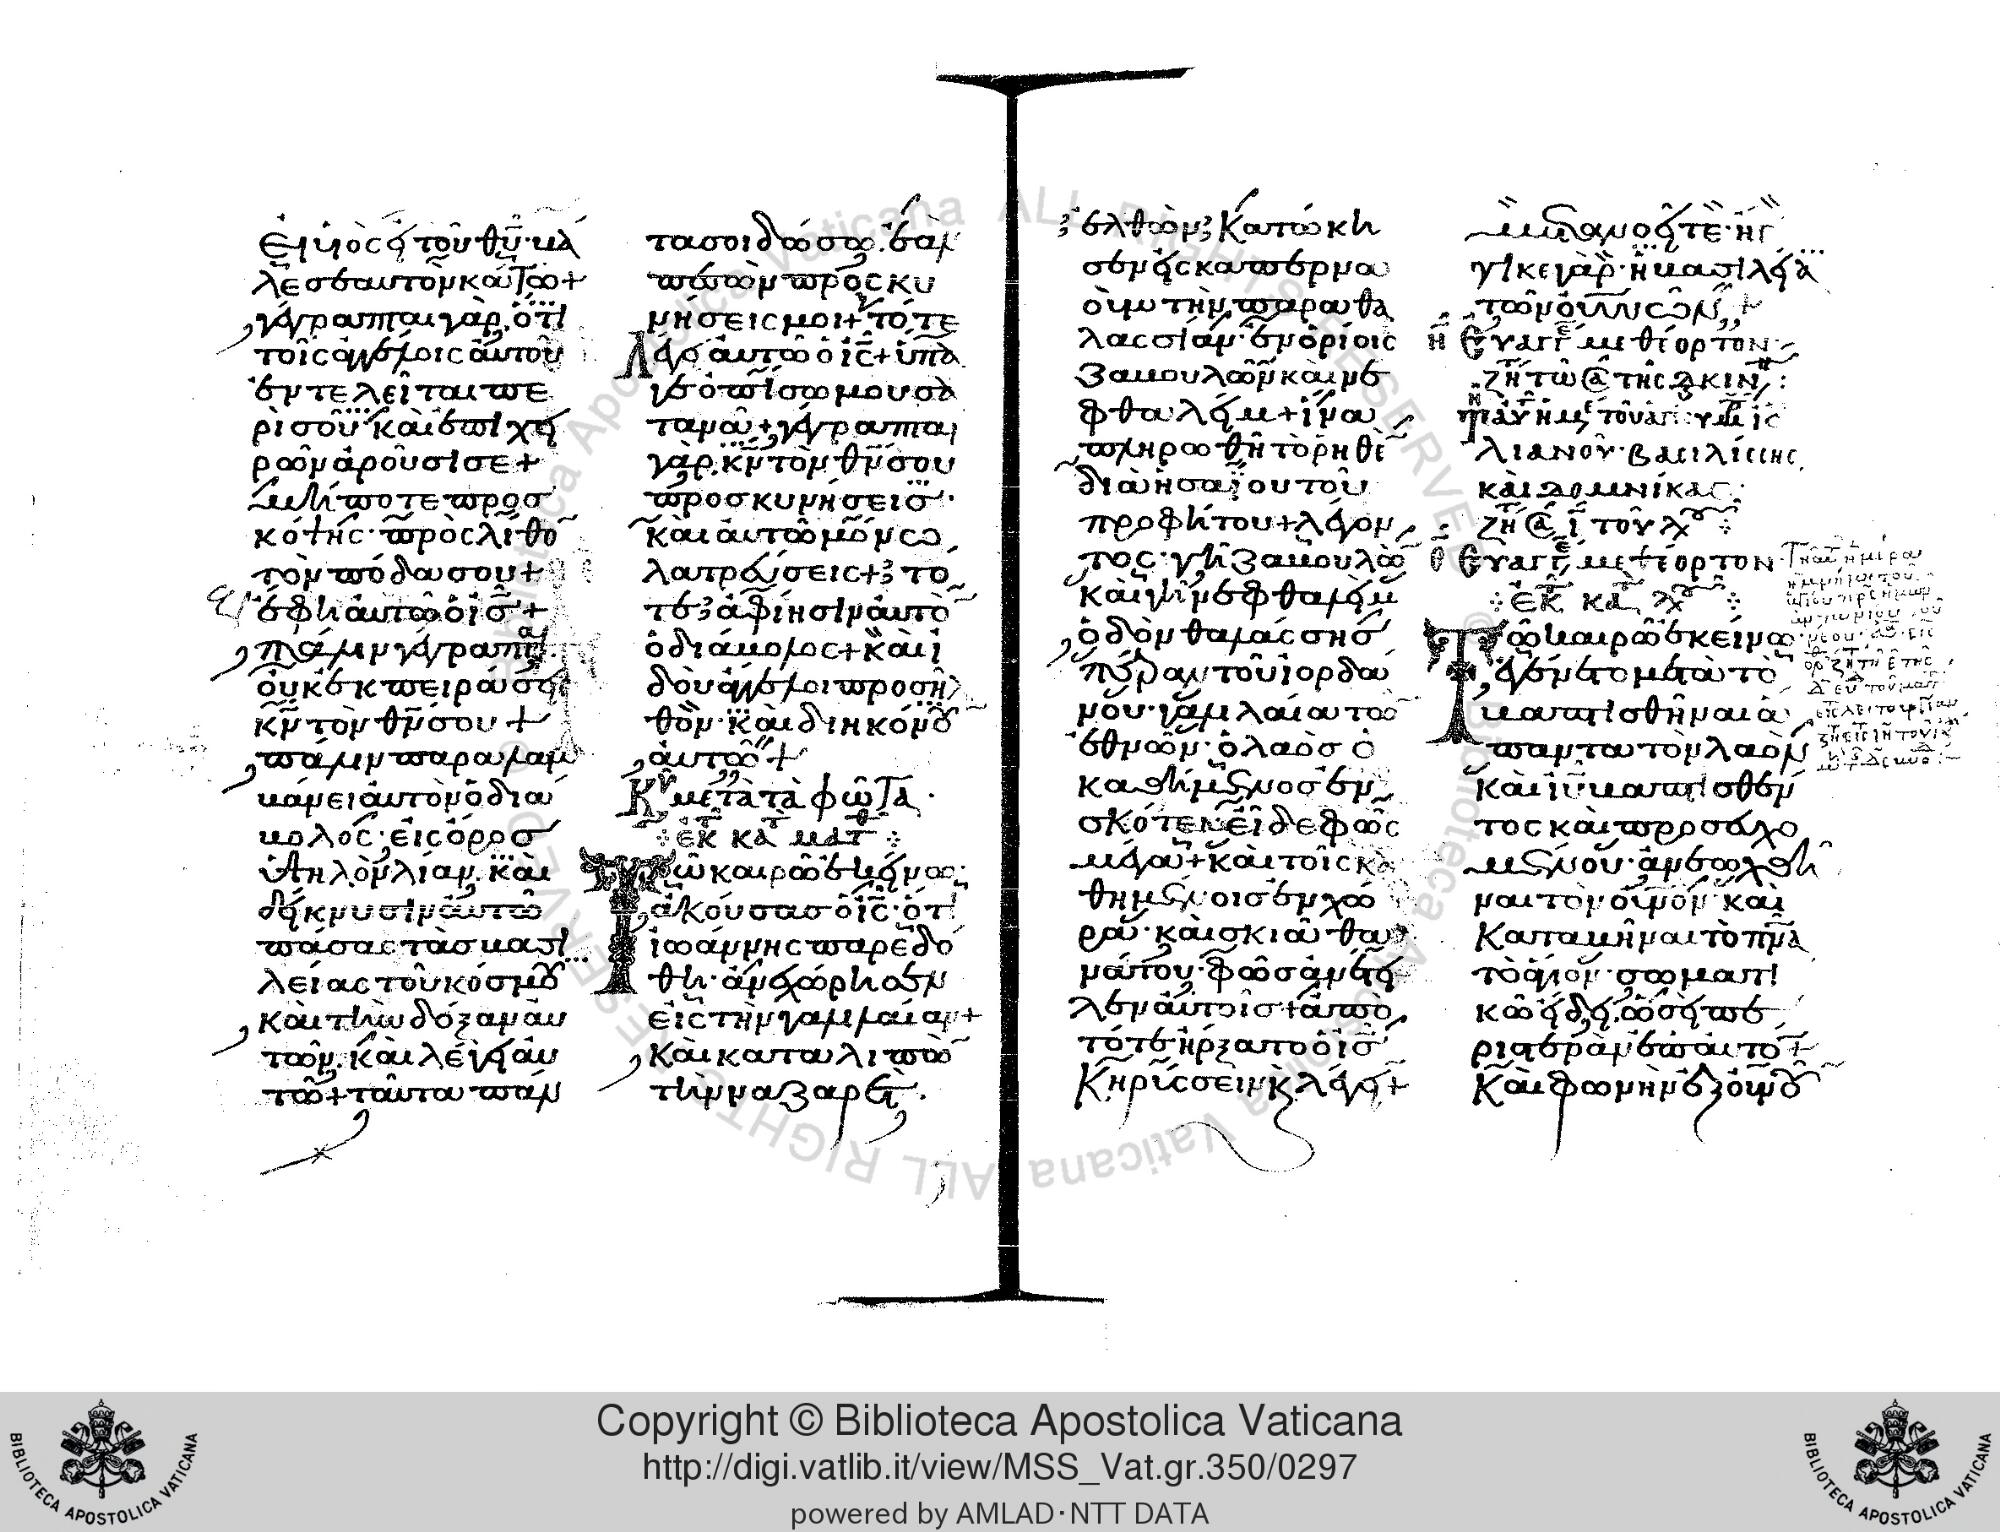 εἰ υἱὸς εἶ τοῦ θυ· βά
λε σεαυτὸν κάτω+
γέγραπται γὰρ, ὅτι
τοῖς ἀγγέλοις αὐτοῦ
ἐντελεῖται πε
ρὶ σοῦ καὶ ἐπὶ χει
ρῶν ἀροῦσί σε+
μήποτε προσ
κόψης· πρὸς λίθο
τὸν πόδα σου+
ἔφη αὐτῶ ὁ ις+
πάλιν γέγραπται.
οὐκ ἐκπειράσεις
κν τὸν θν σου+
πάλιν παραλαμ
βάνει αὐτὸν ὁ διά
βολος· εἰς ὄρος
ὑψηλὸν λίαν. καὶ
δείκνυσιν αὐτῶ
πάσας τὰς βασι
λείας τοῦ κόσμου
καὶ τὴν δόξαν αὐ
τῶν. καὶ λέγει αὐ
τῶ+ ταῦτα πάν
τα σοι δώσω. ἐὰν
πεσὼν προσκυ
νήσεις μοι+ τότε
λέγει αὐτῶ ὁ ις+ ὕπα
γε ὀπίσω μου σα
τανᾶ+ γέγραπται
γὰρ. κν τὸν θν σου
προσκυνήσεις·
καὶ αὐτῶ μόνω
λατρεύσεις+ το
τε ἀφίησιν αὐτὸ
ὁ διάβολος+ καὶ ἰ
δοὺ ἄγγελοι προσῆλ
θον· καὶ διηκόνου
αὐτῶ+
Κυ μετὰ τὰ φῶτα·
ἐκ κατ ματθ
Τῶ καιρῶ ἐκείνω·
ἀκούσας ὁ ις· ὅτι
ἰωάννης παρεδό
θη· ἀνεχώρησεν
εἰς τὴν γαλιλαίαν+
καὶ καταλιπὼ
τὴν ναζαρέτ.
ἐλθὼν κατώκη
σεν εἰς καπερνα
οὺμ τὴν παραθα
λασσίαν· ἐν ὁρίοις
ζαβουλὼν καὶ νε
φθαλείμ+ ἵνα
πληρωθῆ τὸ ρηθὲ
διὰ ἡσαΐου τοῦ
προφήτου+ λέγον
τος· γῆ ζαβουλὼ
καὶ γῆ νεφθαλείμ
ὁδὸν θαλάσσης
πέραν τοῦ ἰορδά
νου· γαλιλαία τῶ
ἐθνῶν· ὁ λαὸς ὁ
καθήμενος ἐν
σκότει εἶδε φῶς
μέγα+ καὶ τοῖς κα
θημένοις ἐν χώ
ρα· καὶ σκιᾶ θα
νάτου· φῶς ἀνέτει
λεν αὐτοῖς+ ἀπὸ
τότε ἤρξατο ὁ ις
κηρύσσειν κ λέγει+
μετανοεῖτε· ἤγ
γικε γὰρ· ἡ βασιλεία
τῶν οὐνῶν+
η Εὐαγγ μεθέορτον·
ζητ τῶ α τῆς διακιν:
λιανοῦ· βασιλίσσης
καὶ δομνίκας·
ζητ ι τοῦ λου
θ Εὐαγγ μεθέορτον
ἐκ κατ λου
Τῶ καιρῶ ἐκείνω
ἐγένετο μετὰ τὸ
βαπτισθῆναι ἅ
παντα τὸν λαὸν
καὶ ιυ βαπτισθέν
τος καὶ προσευχο
μένου· ἀνεωχθῆ
ναι τὸν οὐνόν· καὶ
καταβῆναι τὸ πνα
τὸ ἅγιον· σωματι
κῶ εἴδει. ὡσεὶ πε
ριστερὰν ἐπ' αὐτό+
καὶ φωνὴν ἐξ οὐνοῦ
Copyright © Biblioteca Apostolica Vaticana
http://digi.vatlib.it/view/MSS_Vat.gr.350/0297
powered by AMLAD·NTT DATA
BIBLIOTECA APOSTOLICA VATICANA
BIBLIOTECA APOSTOLICA VATICANA